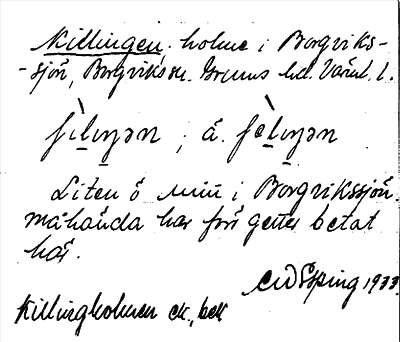 Killingen, holme i Borgviks-
-sjön, Borgviks sn. Grums hd. Värml. l.
ʃìlɩŋən ; å. ʃèlɩŋən
Liten ö mitt i Borgvikssjön.
måhända har förr getter betat
här.
1933.
Killingholmen ek., bek